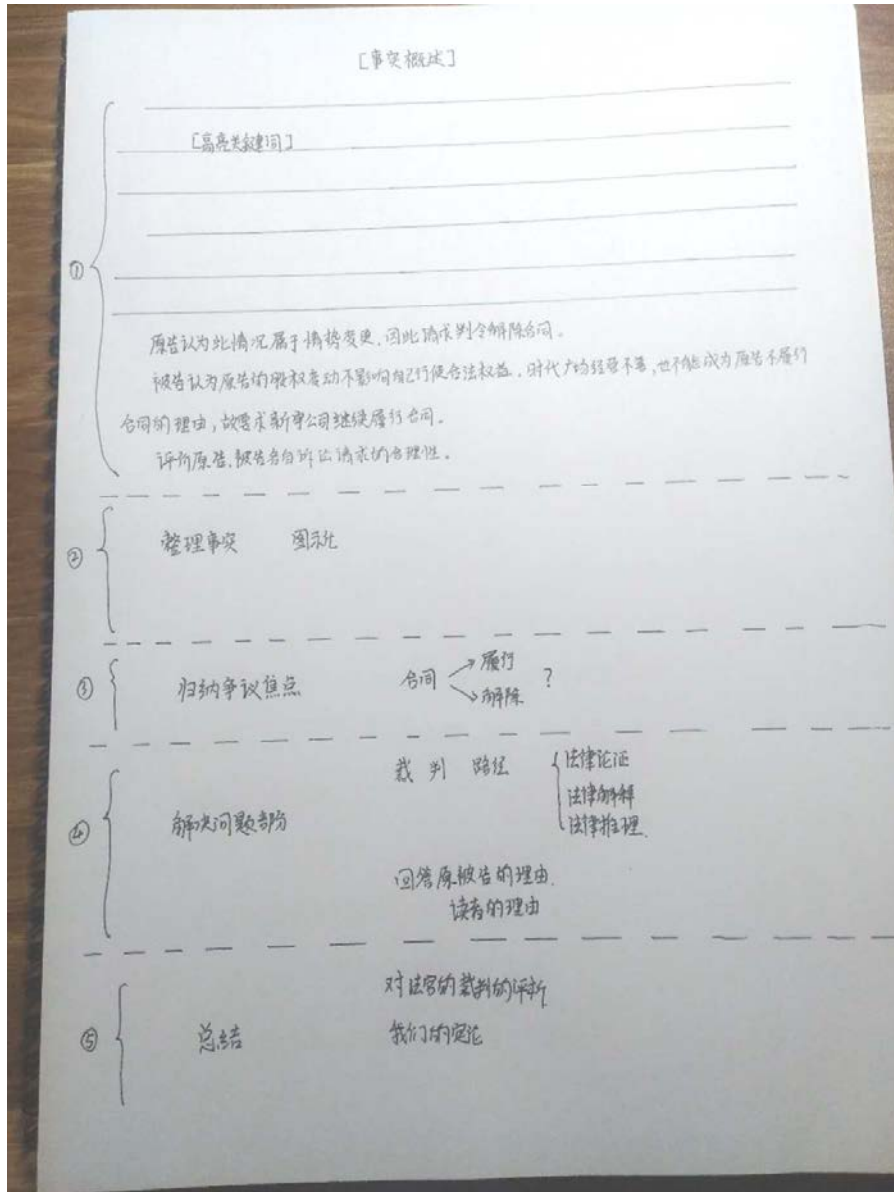 [事实概述]
[高亮关键词]
①
原告认为此情况属于情势变更,因此请求判令解除合同。
被告认为原告的股权变动不影响自己行使合法权益,时代广场经营不善,也不能成为原告不履行
合同的理由,故要求新宇公司继续履行合同。
评价原告、被告各自诉讼请求的合理性。
② 整理事实 图示化
③ 归纳争议焦点 合同 履行 ?
解除
④ 解决问题部分 裁判 路径 法律论证
法律解释
法律推理
回答原被告的理由
读者的理由
对法官的裁判的评析
⑤ 总结 我们的定论